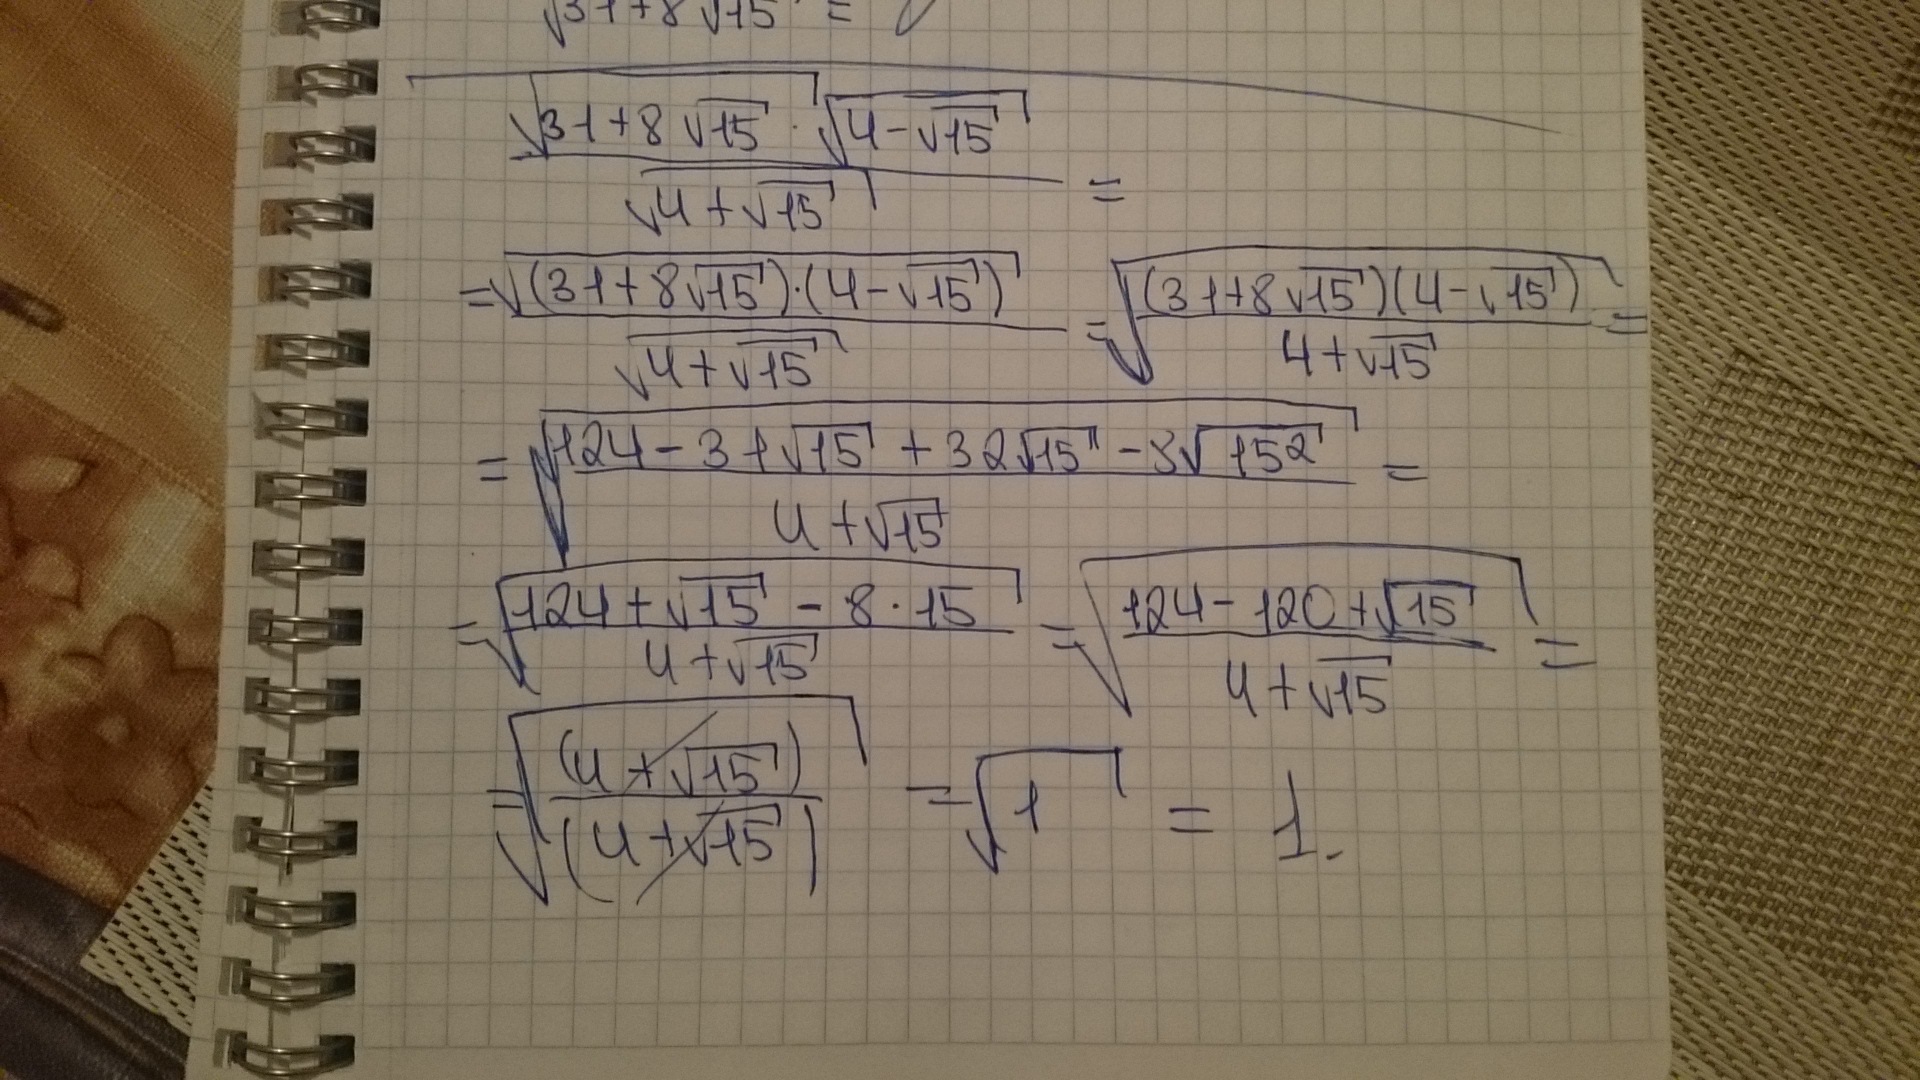 √31+8√15 =
√(31+8√15) · √(4-√15) / √(4+√15) =
= √((31+8√15)·(4-√15)) / √(4+√15) = √((31+8√15)(4-√15) / (4+√15)) =
= √((124-31√15+32√15-8√15²) / (4+√15)) =
= √((124+√15-8·15) / (4+√15)) = √((124-120+√15) / (4+√15)) =
= √((4+√15) / (4+√15)) = √1 = 1.